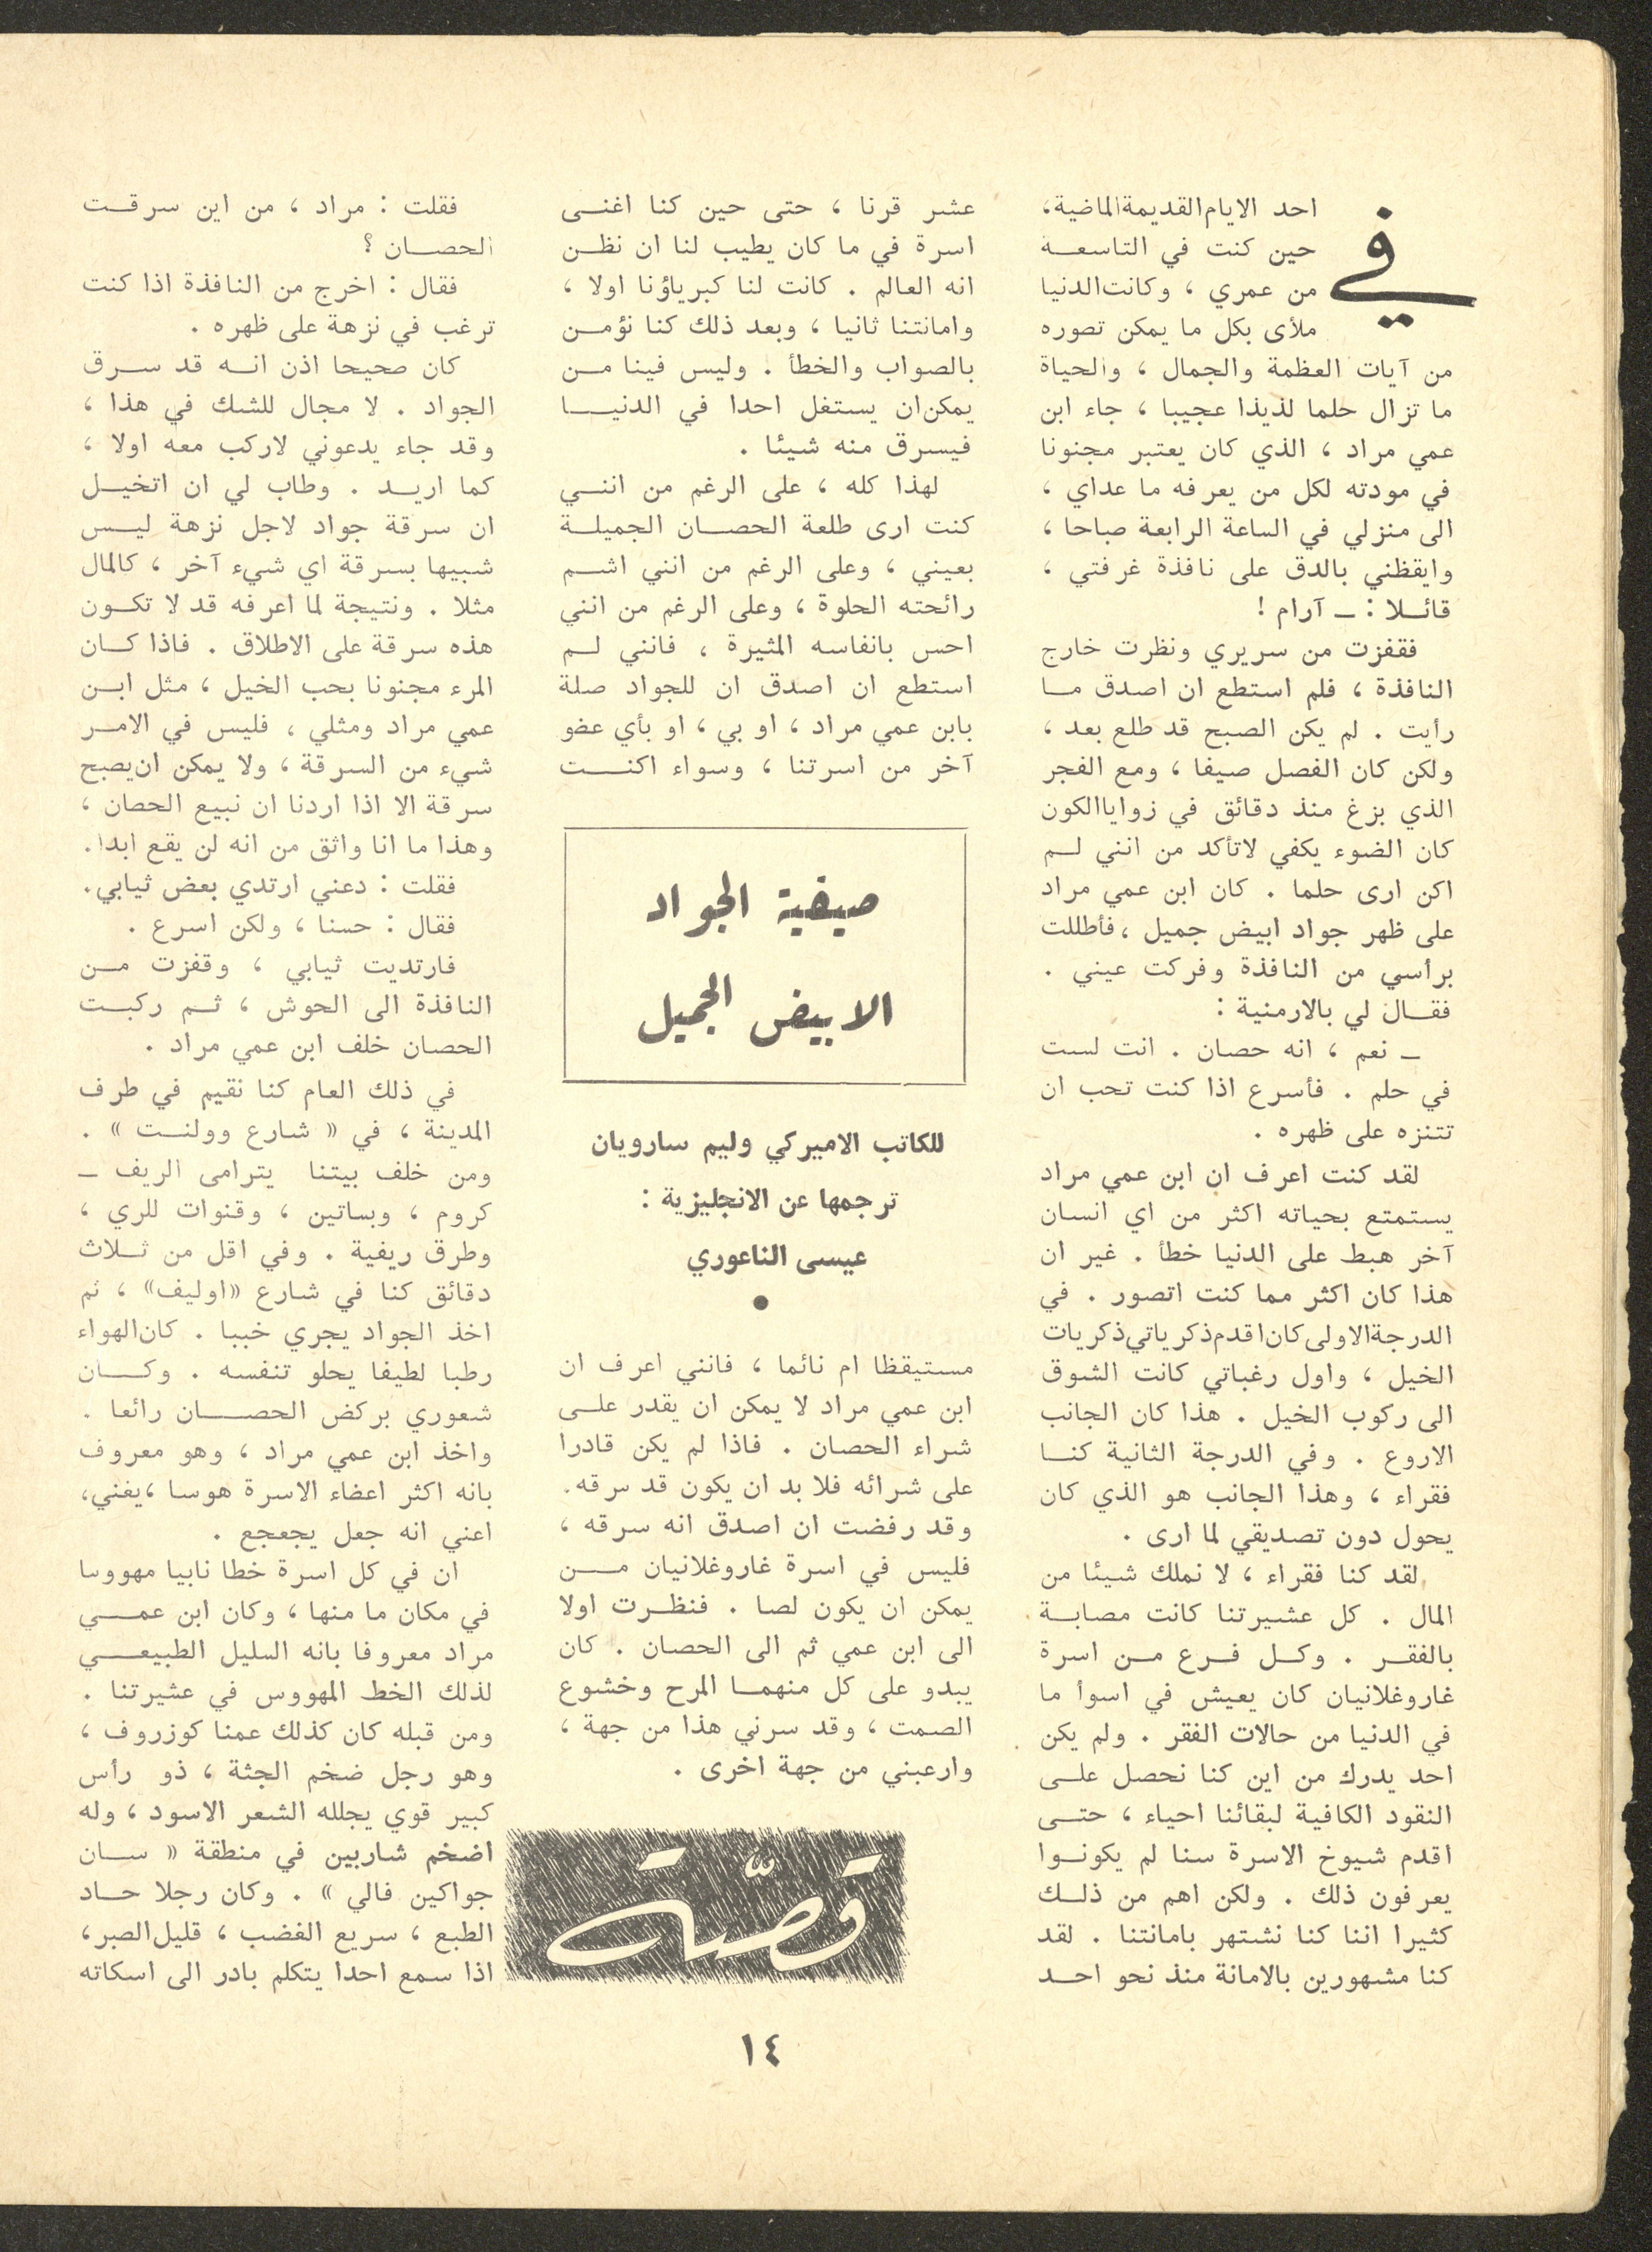 في
احد الايام القديمة الماضية،
حين كنت في التاسعة
من عمري ، وكانت الدنيا
ملأى بكل ما يمكن تصوره
من آيات العظمة والجمال ، والحياة
ما تزال حلما لذيذا عجيبا ، جاء ابن
عمي مراد ، الذي كان يعتبر مجنونا
في مودته لكل من يعرفه ما عداي ،
الى منزلي في الساعة الرابعة صباحا ،
وايقظني بالدق على نافذة غرفتي ،
قائلا : ــ آرام !
فقفزت من سريري ونظرت خارج
النافذة ، فلم استطع ان اصدق ما
رأيت . لم يكن الصبح قد طلع بعد ،
ولكن كان الفصل صيفا ، ومع الفجر
الذي بزغ منذ دقائق في زوايا الكون
كان الضوء يكفي لاتأكد من انني لم
اكن ارى حلما . كان ابن عمي مراد
على ظهر جواد ابيض جميل ، فأطللت
برأسي من النافذة وفركت عيني .
فقال لي بالارمنية :
ــ نعم ، انه حصان . انت لست
في حلم . فأسرع اذا كنت تحب ان
تتنزه على ظهره .
لقد كنت اعرف ان ابن عمي مراد
يستمتع بحياته اكثر من اي انسان
آخر هبط على الدنيا خطأ . غير ان
هذا كان اكثر مما كنت اتصور . في
الدرجة الاولى كان اقدم ذكرياتي ذكريات
الخيل ، واول رغباتي كانت الشوق
الى ركوب الخيل . هذا كان الجانب
الاروع . وفي الدرجة الثانية كنا
فقراء ، وهذا الجانب هو الذي كان
يحول دون تصديقي لما ارى .
لقد كنا فقراء ، لا نملك شيئا من
المال . كل عشيرتنا كانت مصابة
بالفقر . وكل فرع من اسرة
غاروغلانيان كان يعيش في اسوأ ما
في الدنيا من حالات الفقر . ولم يكن
احد يدرك من اين كنا نحصل على
النقود الكافية لبقائنا احياء ، حتى
اقدم شيوخ الاسرة سنا لم يكونوا
يعرفون ذلك . ولكن اهم من ذلك
كثيرا اننا كنا نشتهر بامانتنا . لقد
كنا مشهورين بالامانة منذ نحو احد
عشر قرنا ، حتى حين كنا اغنى
اسرة في ما كان يطيب لنا ان نظن
انه العالم . كانت لنا كبرياؤنا اولا ،
وامانتنا ثانيا ، وبعد ذلك كنا نؤمن
بالصواب والخطأ . وليس فينا من
يمكن ان يستغل احدا في الدنيا
فيسرق منه شيئا .
لهذا كله ، على الرغم من انني
كنت ارى طلعة الحصان الجميلة
بعيني ، وعلى الرغم من انني اشم
رائحته الحلوة ، وعلى الرغم من انني
احس بانفاسه المثيرة ، فانني لم
استطع ان اصدق ان للجواد صلة
بابن عمي مراد ، او بي ، او بأي عضو
آخر من اسرتنا ، وسواء اكنت
صيفية الجواد
الابيض الجميل
للكاتب الاميركي وليم سارويان
ترجمها عن الانجليزية :
عيسى الناعوري
●
مستيقظا ام نائما ، فانني اعرف ان
ابن عمي مراد لا يمكن ان يقدر على
شراء الحصان . فاذا لم يكن قادرا
على شرائه فلا بد ان يكون قد سرقه.
وقد رفضت ان اصدق انه سرقه ،
فليس في اسرة غاروغلانيان من
يمكن ان يكون لصا . فنظرت اولا
الى ابن عمي ثم الى الحصان . كان
يبدو على كل منهما المرح وخشوع
الصمت ، وقد سرني هذا من جهة ،
وارعبني من جهة اخرى .
قصّة
فقلت : مراد ، من اين سرقت
الحصان ؟
فقال : اخرج من النافذة اذا كنت
ترغب في نزهة على ظهره .
كان صحيحا اذن انه قد سرق
الجواد . لا مجال للشك في هذا ،
وقد جاء يدعوني لاركب معه اولا ،
كما اريد . وطاب لي ان اتخيل
ان سرقة جواد لاجل نزهة ليس
شبيها بسرقة اي شيء آخر ، كالمال
مثلا . ونتيجة لما اعرفه قد لا تكون
هذه سرقة على الاطلاق . فاذا كان
المرء مجنونا بحب الخيل ، مثل ابن
عمي مراد ومثلي ، فليس في الامر
شيء من السرقة ، ولا يمكن ان يصبح
سرقة الا اذا اردنا ان نبيع الحصان ،
وهذا ما انا واثق من انه لن يقع ابدا.
فقلت : دعني ارتدي بعض ثيابي.
فقال : حسنا ، ولكن اسرع .
فارتديت ثيابي ، وقفزت من
النافذة الى الحوش ، ثم ركبت
الحصان خلف ابن عمي مراد .
في ذلك العام كنا نقيم في طرف
المدينة ، في « شارع وولنت » .
ومن خلف بيتنا يترامى الريف ــ
كروم ، وبساتين ، وقنوات للري ،
وطرق ريفية . وفي اقل من ثلاث
دقائق كنا في شارع «اوليف» ، ثم
اخذ الجواد يجري خببا . كان الهواء
رطبا لطيفا يحلو تنفسه . وكان
شعوري بركض الحصان رائعا .
واخذ ابن عمي مراد ، وهو معروف
بانه اكثر اعضاء الاسرة هوسا ،يغني،
اعني انه جعل يجعجع .
ان في كل اسرة خطا نابيا مهووسا
في مكان ما منها ، وكان ابن عمي
مراد معروفا بانه السليل الطبيعي
لذلك الخط المهووس في عشيرتنا .
ومن قبله كان كذلك عمنا كوزروف ،
وهو رجل ضخم الجثة ، ذو رأس
كبير قوي يجلله الشعر الاسود ، وله
اضخم شاربين في منطقة « سان
جواكين فالي » . وكان رجلا حاد
الطبع ، سريع الغضب ، قليل الصبر،
اذا سمع احدا يتكلم بادر الى اسكاته
١٤